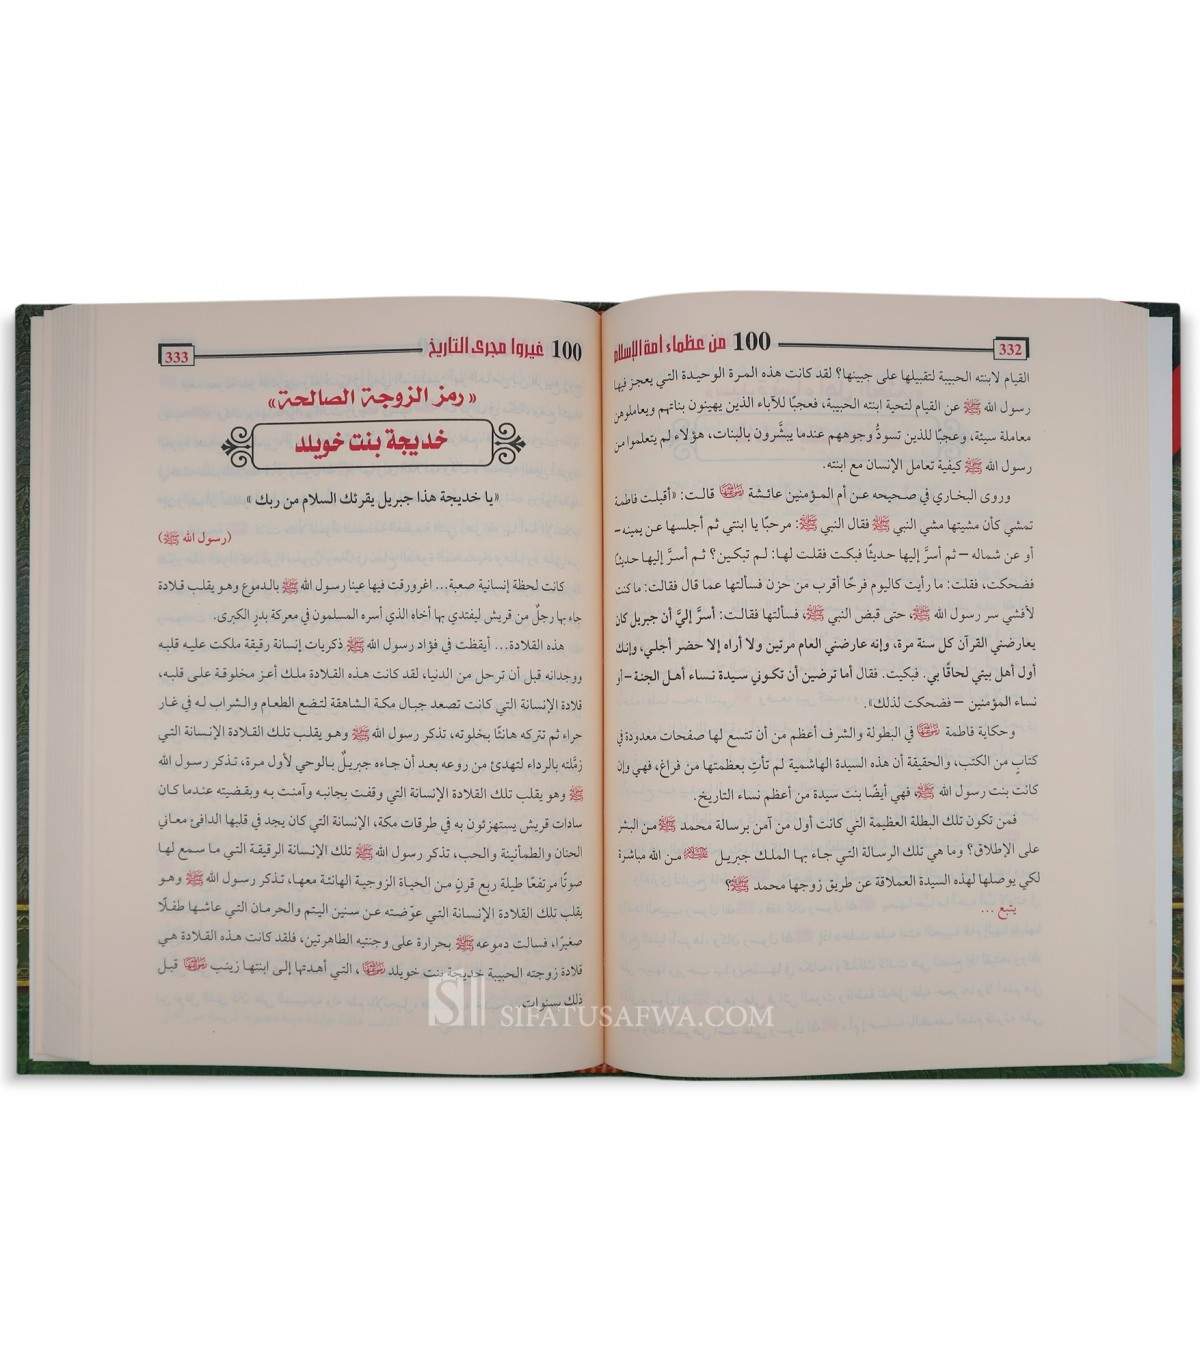 332
100 من عظماء أمة الإسلام
القيام لابنته الحبيبة لتقبيلها على جبينها؟ لقد كانت هذه المرة الوحيدة التي يعجز فيها
رسول الله ﷺ عن القيام لتحية ابنته الحبيبة، فعجبًا للآباء الذين يهينون بناتهم ويعاملوهن
معاملة سيئة، وعجبًا للذين تسودُّ وجوههم عندما يبشَّرون بالبنات، هؤلاء لم يتعلموا من
رسول الله ﷺ كيفية تعامل الإنسان مع ابنته.
وروى البخاري في صحيحه عن أم المؤمنين عائشة رضي الله عنها قالت: «أقبلت فاطمة
تمشي كأن مشيتها مشي النبي ﷺ فقال النبي ﷺ: مرحبًا يا ابنتي ثم أجلسها عن يمينه –
أو عن شماله – ثم أسرَّ إليها حديثًا فبكت فقلت لها: لم تبكين؟ ثم أسرَّ إليها حديثًا
فضحكت، فقلت: ما رأيت كاليوم فرحًا أقرب من حزن فسألتها عما قال فقالت: ما كنت
لأفشي سر رسول الله ﷺ، حتى قبض النبي ﷺ، فسألتها فقالت: أسرَّ إليَّ أن جبريل كان
يعارضني القرآن كل سنة مرة، وإنه عارضني العام مرتين ولا أراه إلا حضر أجلي، وإنك
أول أهل بيتي لحاقًا بي. فبكيت. فقال أما ترضين أن تكوني سيدة نساء أهل الجنة – أو
نساء المؤمنين – فضحكت لذلك».
وحكاية فاطمة رضي الله عنها في البطولة والشرف أعظم من أن تتسع لها صفحات معدودة في
كتابٍ من الكتب، والحقيقة أن هذه السيدة الهاشمية لم تأتِ بعظمتها من فراغ، فهي وإن
كانت بنت رسول الله ﷺ، فهي أيضًا بنت سيدة من أعظم نساء التاريخ.
فمن تكون تلك البطلة العظيمة التي كانت أول من آمن برسالة محمد ﷺ من البشر
على الإطلاق؟ وما هي تلك الرسالة التي جاء بها الملك جبريل من الله مباشرة
لكي يوصلها لهذه السيدة العملاقة عن طريق زوجها محمد ﷺ؟
يتبع ...
100 غيروا مجرى التاريخ
333
« رمز الزوجة الصالحة»
خديجة بنت خويلد
«يا خديجة هذا جبريل يقرئك السلام من ربك »
(رسول الله ﷺ)
كانت لحظة إنسانية صعبة... اغرورقت فيها عينا رسول الله ﷺ بالدموع وهو يقلب قلادة
جاء بها رجلٌ من قريش ليفتدي بها أخاه الذي أسره المسلمون في معركة بدرٍ الكبرى.
هذه القلادة... أيقظت في فؤاد رسول الله ﷺ ذكريات إنسانة رقيقة ملكت عليه قلبه
ووجدانه قبل أن ترحل من الدنيا، لقد كانت هذه القلادة ملك أعز مخلوقة على قلبه،
قلادة الإنسانة التي كانت تصعد جبال مكة الشاهقة لتضع الطعام والشراب له في غار
حراء ثم تتركه هانئًا بخلوته، تذكر رسول الله ﷺ وهو يقلب تلك القلادة الإنسانة التي
زمَّلته بالرداء لتهدئ من روعه بعد أن جاءه جبريلٌ بالوحي لأول مرة، تذكر رسول الله
ﷺ وهو يقلب تلك القلادة الإنسانة التي وقفت بجانبه وآمنت به وبقضيته عندما كان
سادات قريش يستهزئون به في طرقات مكة، الإنسانة التي كان يجد في قلبها الدافئ معاني
الحنان والطمأنينة والحب، تذكر رسول الله ﷺ تلك الإنسانة الرقيقة التي ما سمع لها
صوتًا مرتفعًا طيلة ربع قرنٍ من الحياة الزوجية الهانئة معها، تذكر رسول الله ﷺ وهو
يقلب تلك القلادة الإنسانة التي عوّضته عن سنين اليتم والحرمان التي عاشها طفلًا
صغيرًا، فسالت دموعه ﷺ بحرارة على وجنتيه الطاهرتين، فلقد كانت هذه القلادة هي
قلادة زوجته الحبيبة خديجة بنت خويلد رضي الله عنها، التي أهدتها إلى ابنتها زينب رضي الله عنها قبل
ذلك بسنوات.
SIFATUSAFWA.COM